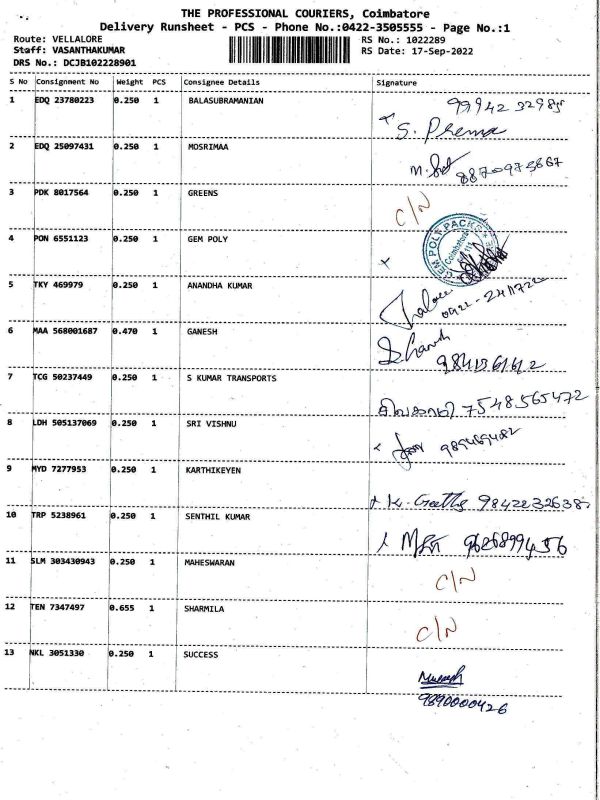 THE PROFESSIONAL COURIERS, Coimbatore
Delivery Runsheet - PCS - Phone No.:0422-3505555 - Page No.:1
Route: VELLALORE RS No.: 1022289
Staff: VASANTHAKUMAR RS Date: 17-Sep-2022
DRS No.: DCJB102228901
S No Consignment No Weight PCS Consignee Details Signature
1 EDQ 23780223 0.250 1 BALASUBRAMANIAN
S. Prema
2 EDQ 25097431 0.250 1 MOSRIMAA
3 PDK 8017564 0.250 1 GREENS
C/N
4 PON 6551123 0.250 1 GEM POLY
GEM POLY PACKS
Coimbatore
5 TKY 469979 0.250 1 ANANDHA KUMAR
6 MAA 568001687 0.470 1 GANESH
7 TCG 50237449 0.250 1 S KUMAR TRANSPORTS
7548565472
8 LDH 505137069 0.250 1 SRI VISHNU
9 MYD 7277953 0.250 1 KARTHIKEYEN
K. Geetha
10 TRP 5238961 0.250 1 SENTHIL KUMAR
9626899456
11 SLM 303430943 0.250 1 MAHESWARAN
C/N
12 TEN 7347497 0.655 1 SHARMILA
C/N
13 NKL 3051330 0.250 1 SUCCESS
9890000426